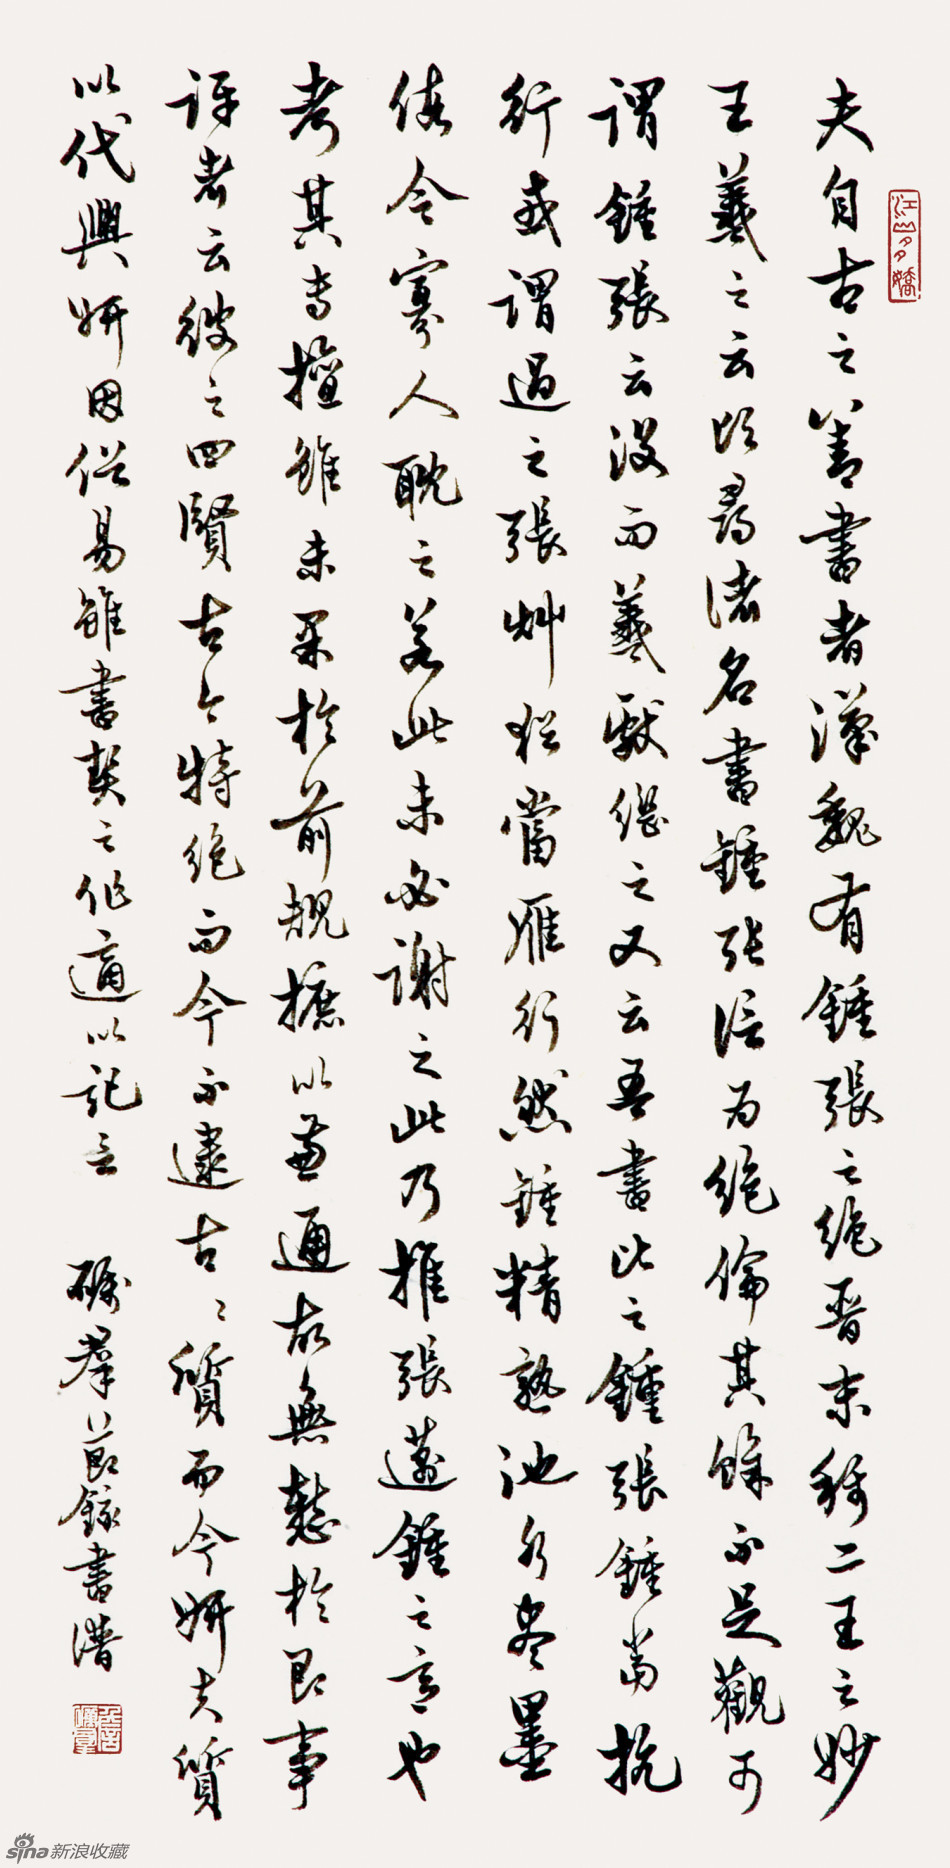 夫自古之善書者漢魏有鍾張之絶晉末稱二王之妙
王羲之云頃尋諸名書鍾張信為絶倫其餘不足觀可
謂鍾張云没而羲獻繼之又云吾書比之鍾張鍾當抗
行或謂過之張草猶當雁行然鍾精熟池水盡墨
假令寡人耽之若此未必謝之此乃推張邁鍾之意也
考其専擅雖未果於前規摭以兼通故無慙於即事
評者云彼之四賢古今特絶而今不逮古〻質而今妍夫質
以代興妍因俗易雖書契之作適以記言 群節錄書譜
江山多嬌
sina新浪收藏